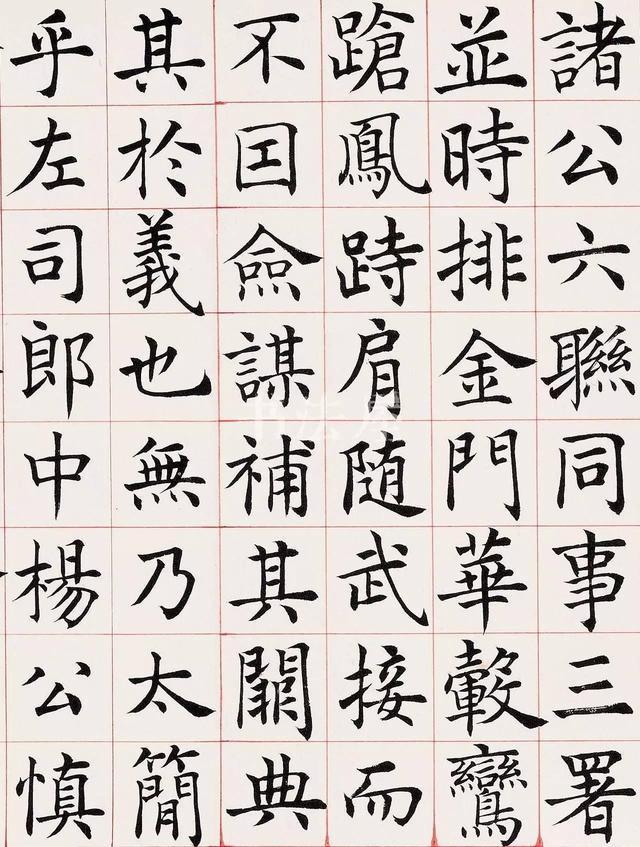 諸公六聯同事三署
並時排金門華轂鸞
蹌鳳跱肩随武接而
不囙僉謀補其闕典
其於義也無乃太簡
乎左司郎中楊公慎
书法屋